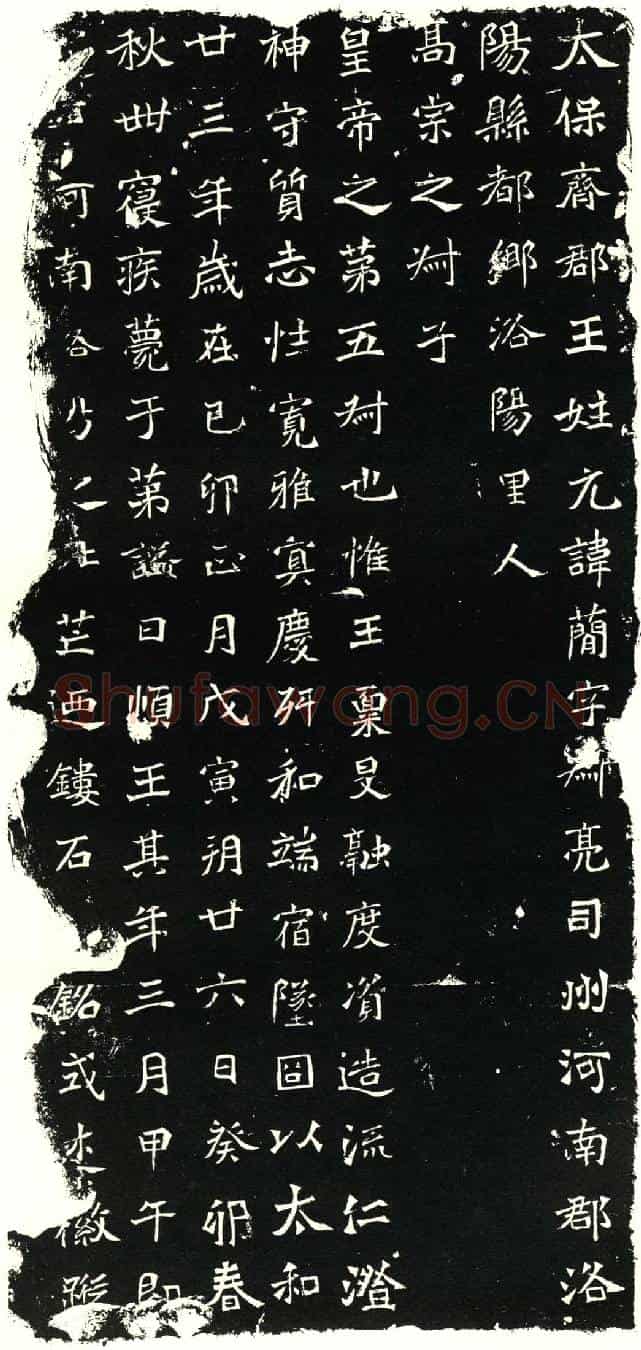 太保齊郡王姓元諱簡字叔亮司州河南郡洛
陽縣都鄉洛陽里人
高宗之叔子
皇帝之第五叔也惟王稟旻融度資造流仁澄
神守質志性寬雅寘慶妍和端宿墜固以太和
廿三年歲在己卯正月戊寅朔廿六日癸卯春
秋卌寢疾薨于第諡曰順王其年三月甲午即
河南洛之芒迺鏤石銘式述徽蹤
Shufawang.CN